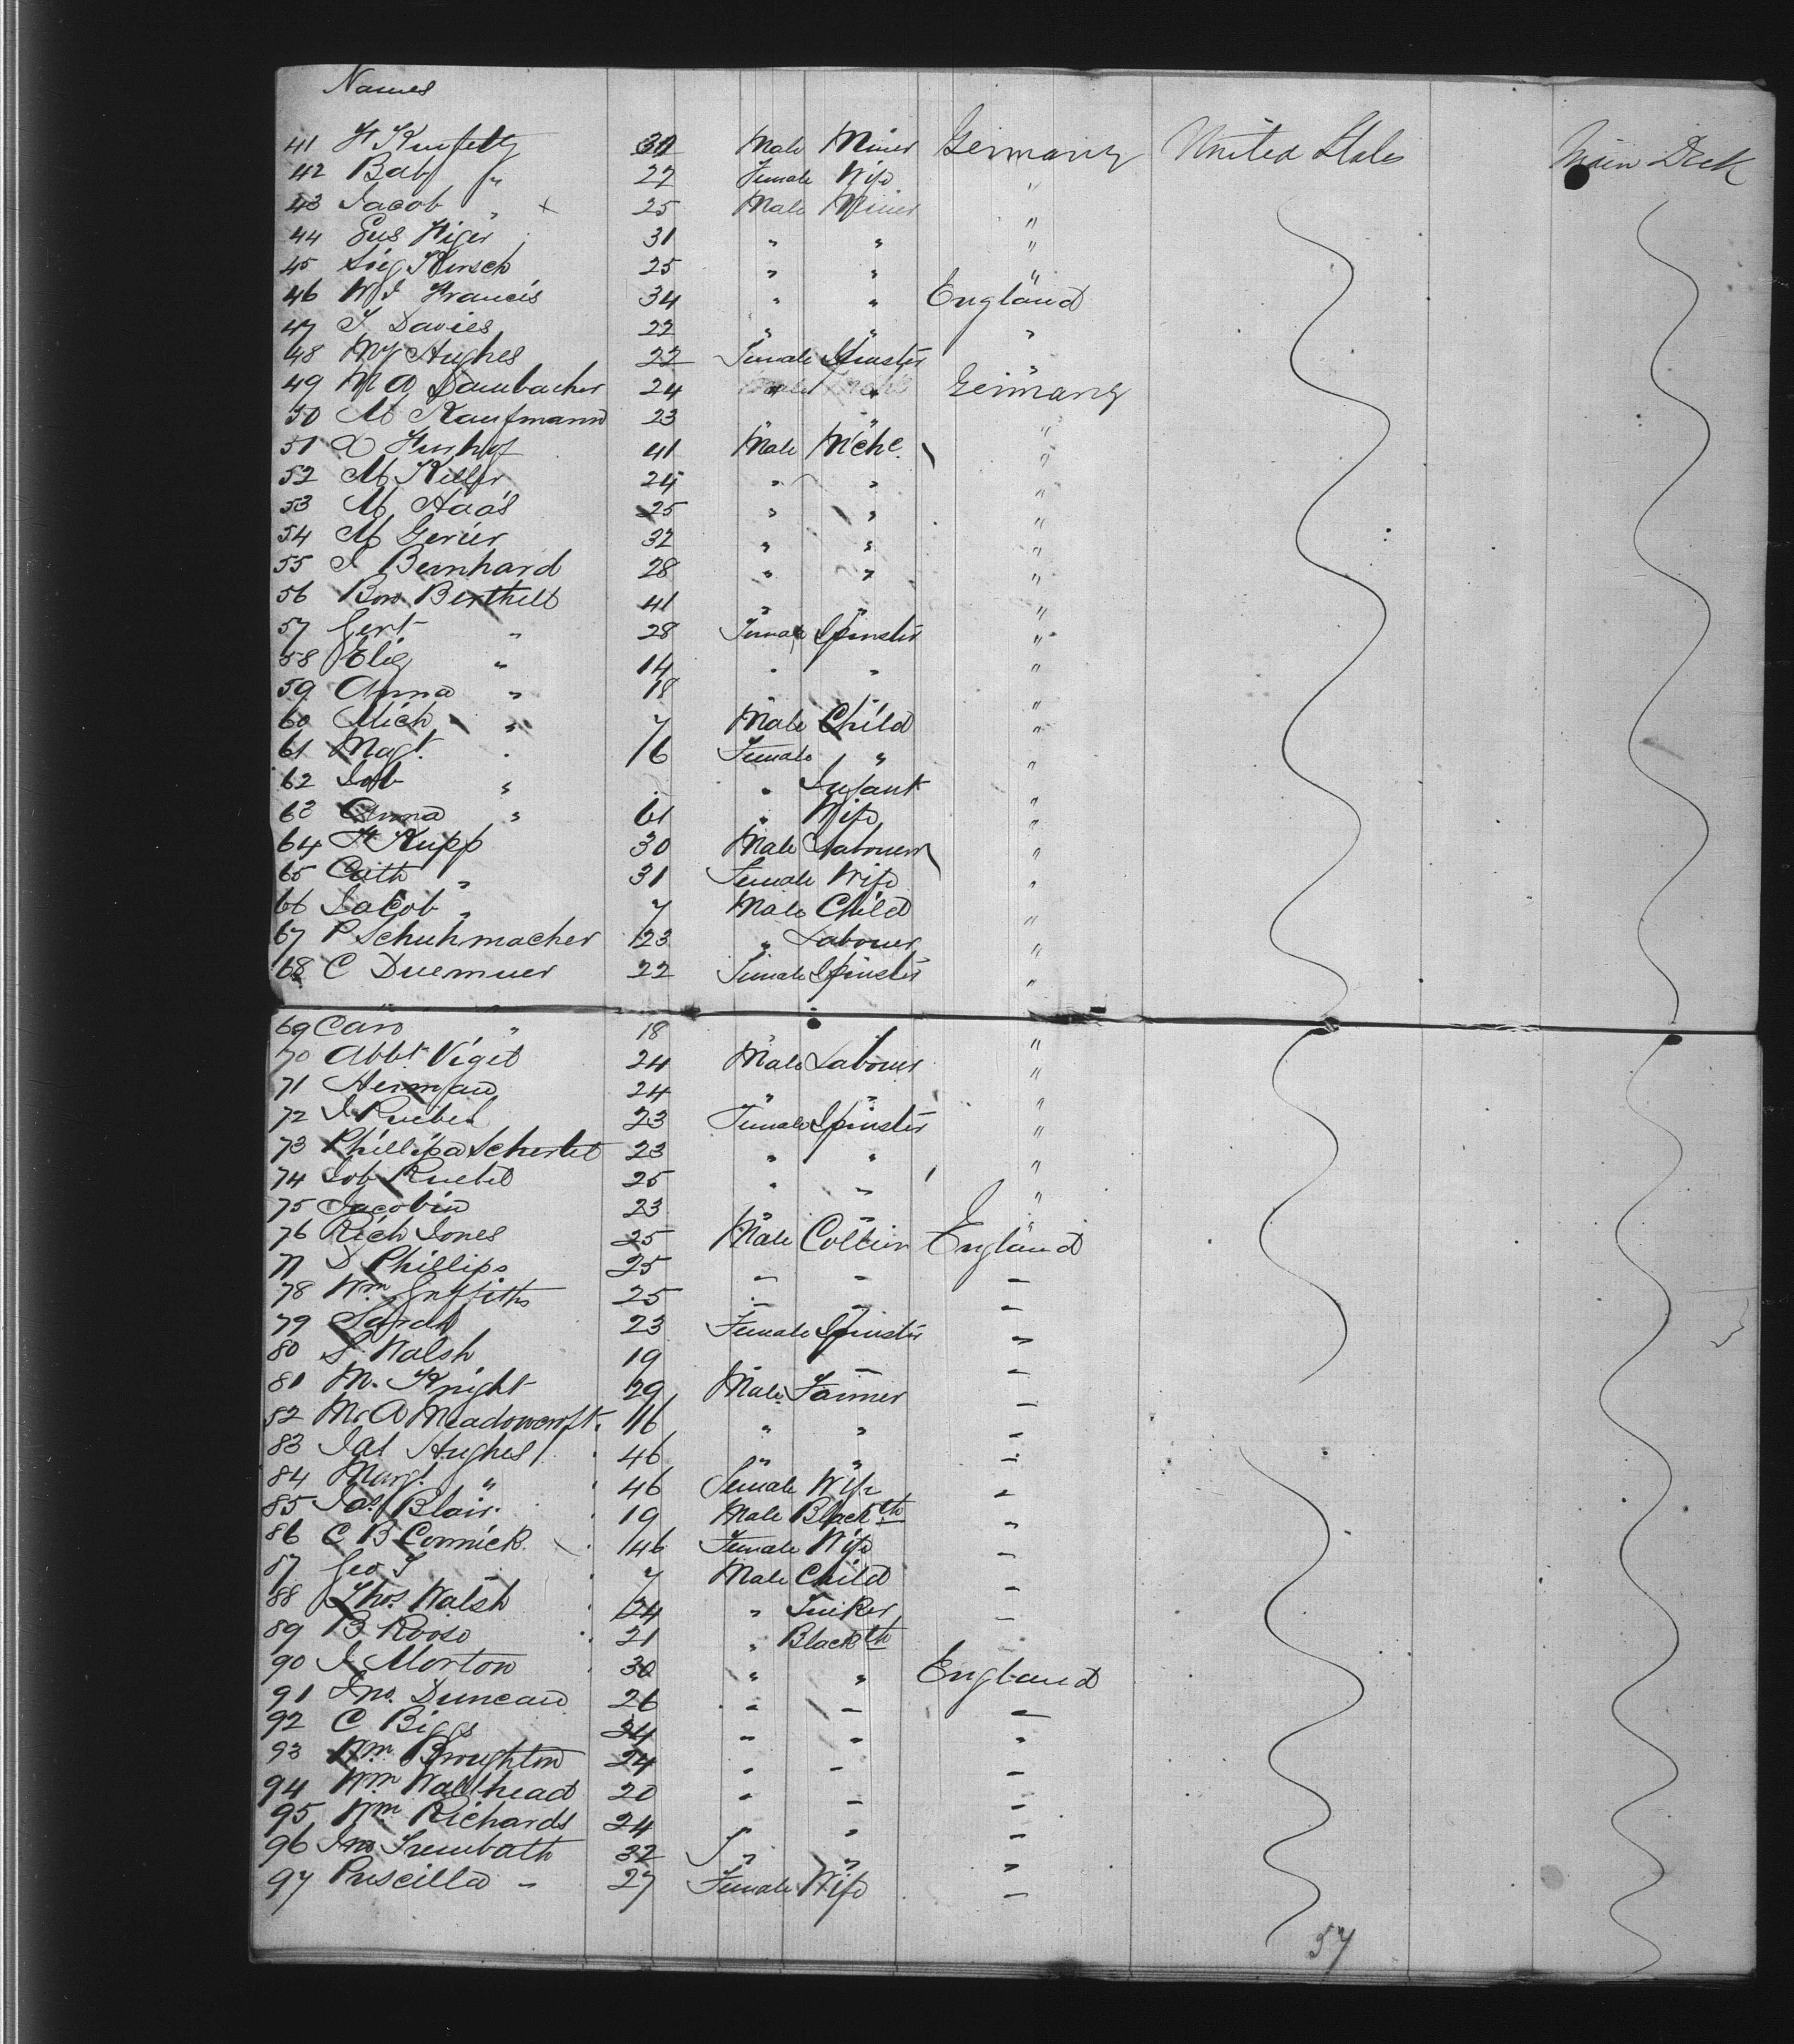 Names
41 H 30 Male Miner Germany United States Main Deck
42 Bab " 22 Female Wife "
43 Jacob " x 25 Male Miner "
44 Gus Higer 31 " " "
45 Sieg Hirsch 25 " " "
46 W J Francis 34 " " England
47 J Davies 22 " " "
48 My Hughes 22 Female Spinster "
49 M A Dambacher 24 " " Germany
50 M Kaufmann 23 " " "
51 41 Male Mchc "
52 M Killer 24 " " "
53 M Haas 25 " " "
54 M Gerier 32 " " "
55 J Bernhard 28 " " "
56 Berthell 41 " " "
57 Gert " 28 Female Spinster "
58 Elig " 14 " " "
59 Anna " 18 " " "
60 Mich " 7 Male Child "
61 Magt. " 6 Female " "
62 " " Infant "
63 Anna " 61 " Wife "
64 H Kupp 30 Male Labourer "
65 Cath " 31 Female Wife "
66 Jacob " 7 Male Child "
67 P Schuhmacher 23 " Labourer "
68 C Duemuer 22 Female Spinster "
69 Caro " 18 " "
70 Abbt Vigil 24 Male Labourer "
71 Herman 24 " " "
72 J Ruebel 23 Female Spinster "
73 Phillipa Schertel 23 " " "
74 Ruebel 25 " " "
75 Jacobin 23 " "
76 Rich Jones 25 Male Collier England
77 D Phillips 25 " " "
78 Wm Griffiths 25 " " "
79 Sarah 23 Female Spinster "
80 S Walsh 19 " "
81 M. Knight 29 Male Farmer "
82 Mr A Meadowcroft 16 " " "
83 Jas Hughes 46 " " "
84 Margt. " 46 Female Wife "
85 Jas Blair 19 Male Blackth "
86 C B Cormick 46 Female Wife "
87 Geo T " 7 Male Child "
88 Thos Walsh 24 " Tinker "
89 B Rooso 21 " Blackth
90 J Morton 30 " " England
91 Jno. Duncan 26 " " "
92 C Biggs 24 " " "
93 Wm Broughton 24 " " "
94 Wm Wallhead 20 " " "
95 Wm Richards 24 " " "
96 Jno Trembath 32 " " "
97 Priscilla " 27 Female Wife "
57